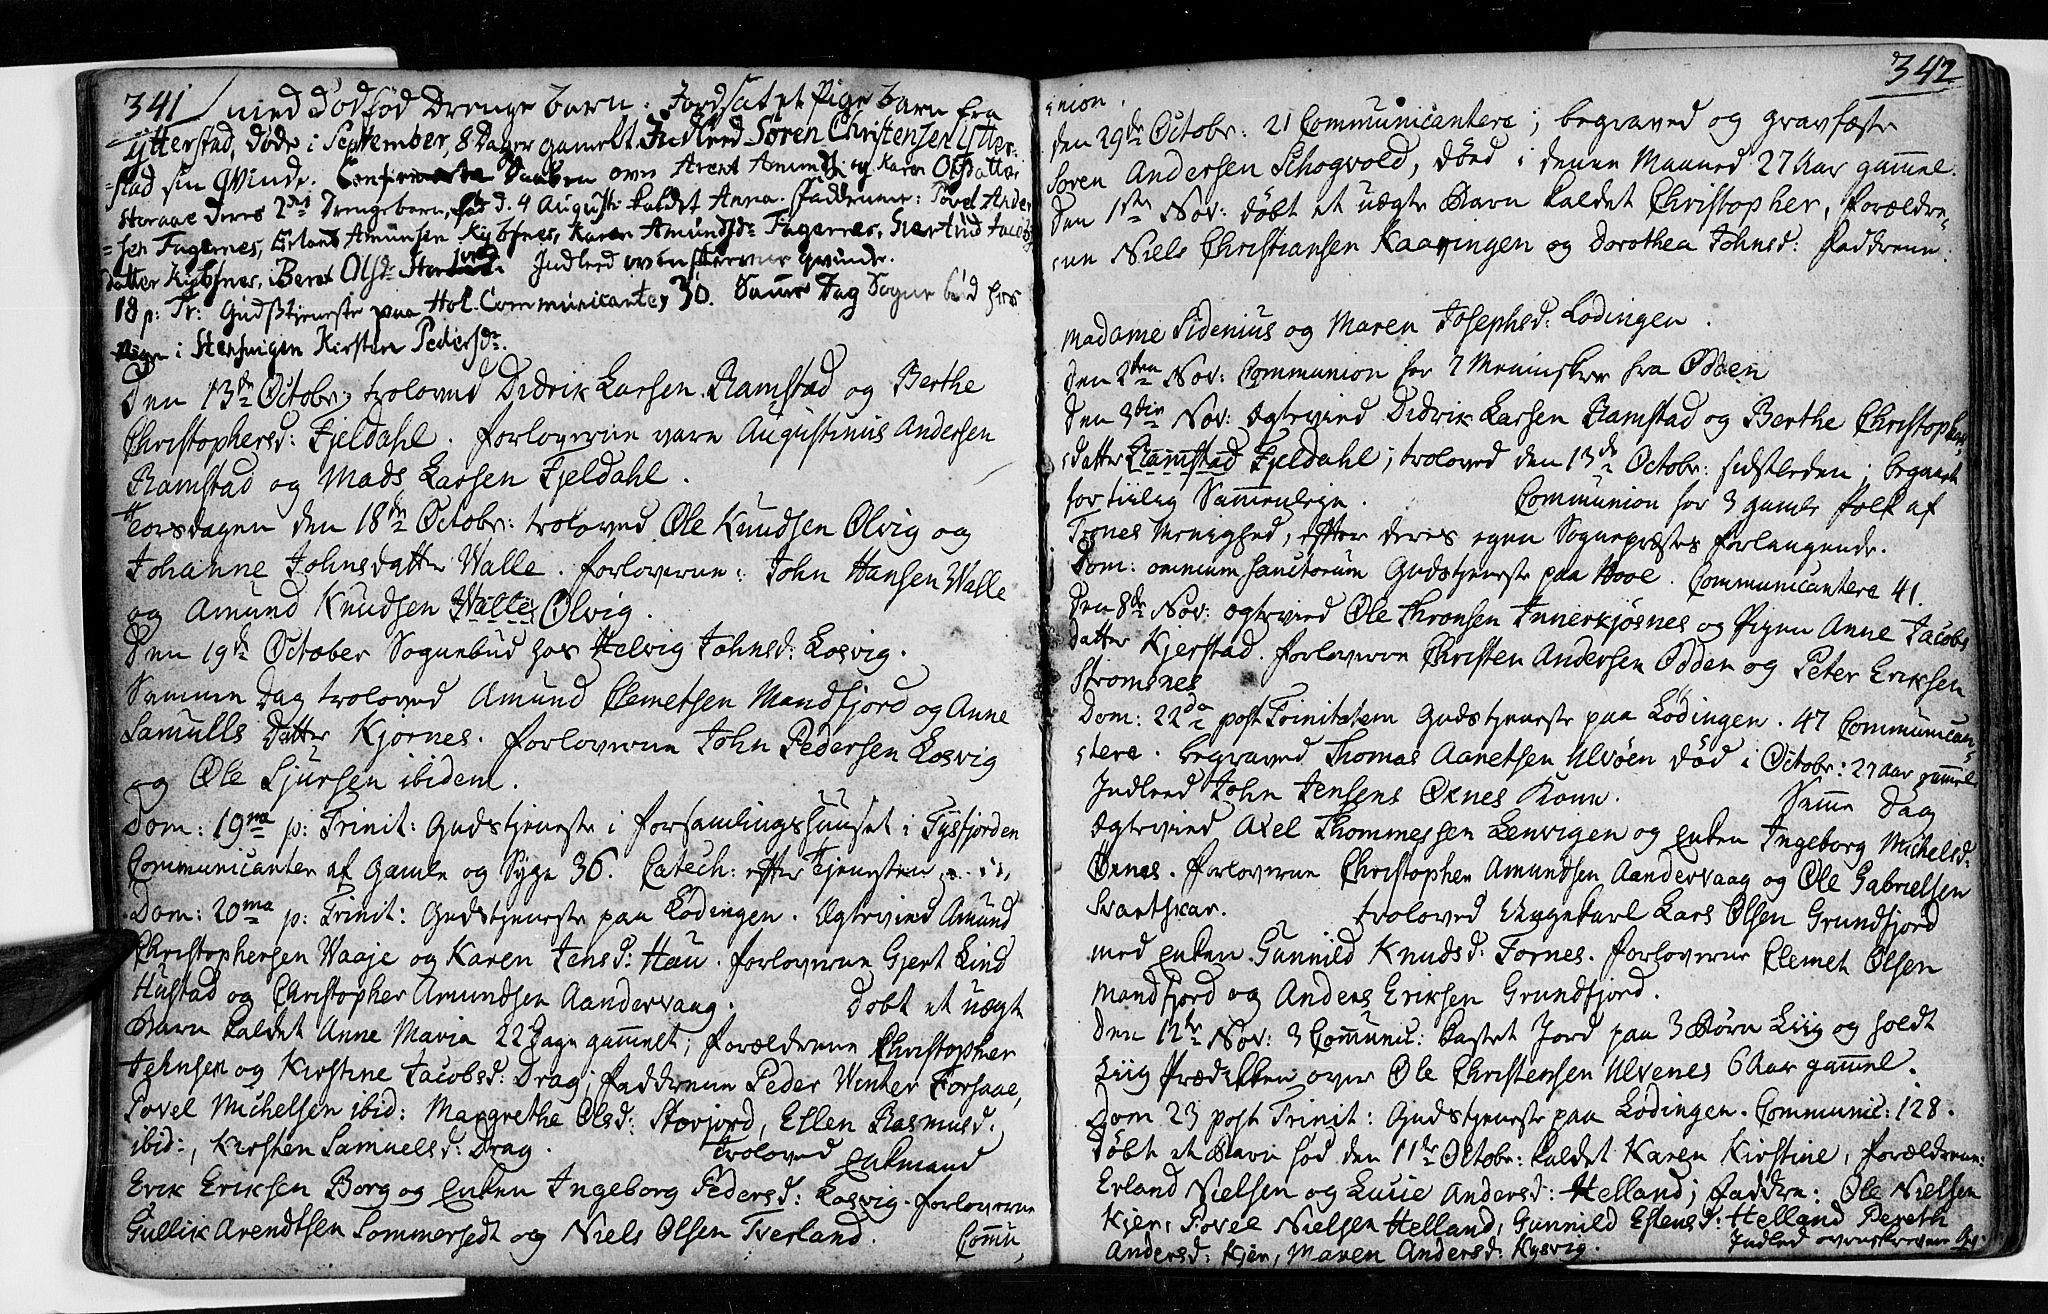 341 med Dødfød Drenge barn. Jordsat et Pige barn fra
Ytterstad, døde i September, 8 Dager gamelt. Indleed Søren Christensen Ytter-
=stad sin Qvinde. Confirmerte Daaben over Arent Amunds: og Karen Olsdatters
Storaae deres Drengebarn, fød d. 4 August: kaldet Anna. Faddrene: Povel Ander
=sen Fagernes, Erland Amunsen Kybsnes, Karen Amundsd: Fagernes, Gertrud Jacobs
datter Kybsnes, Beret Olsd: Indleed ovenskrevne Qvinde.
18 p: Tr: Gudstjeneste paa Hol. Communicanter, 30. Samme Dag Sognebud hos
Pigen i Stefsvigen Kirsten Pedersdr.
Den 13de Octobr: troloved Didrik Larsen Ramstad og Berthe
Christophersd: Fjeldahl. Forloverne vare Augustinus Andersen
Ramstad og Mads Larsen Fjeldahl.
Torsdagen den 18de Octobr: troloved Ole Knudsen Olvig og
Johanne Johnsdatter Walle. Forloverne: John Hansen Walle
og Amund Knudsen Walle Olvig.
Den 19de October Sognebud hos Helvig Johnsd: Losvig.
Samme Dag troloved Amund Clemetsen Mandfjord og Anne
Samuels Datter Kjørnes. Forloverne John Pedersen Losvig
og Ole Sjursen ibidem.
Dom: 19ma p: Trinit: Gudstjeneste i Forsamlingshuuset i Tysfjorden
Communicanter af Gamle og Syge 36. Catech: efter Tjenesten
Dom: 20ma p: Trinit: Gudstjeneste paa Lødingen. Ægtevied Amund
Christophersen Waaje og Karen Jensd: Hau. Forloverne Gjert Lind
Hustad og Christopher Amundsen Aandervaag. Døbt et uægt
Barn kaldet Anne Maria 22 Dage gammelt; Forældrene Christopher
Johnsen og Kirstine Jacobsd: Drag; Faddrene Peder Winter Forsaae,
Povel Michelsen ibid: Margrethe Olsd: Storjord, Ellen Rasmusd.
ibid:, Kirsten Samuelsd: Drag. Troloved Enkmand
Erik Eriksen Borg og Enken Ingeborg Pedersd: Losvig. Forloverne
Gullik Arendtsen Sommersedt og Niels Olsen Tverland. Commu,
342
nion.
Den 29de Octobr: 21 Communicantere; begraved og gravfæste
Soren Andersen Schogvold, døed i denne Maaned 27 Aar gammel.
Den 1ste Nov: døbt et uægte Barn kaldet Christopher, Forældre-
=ne Niels Christiansen Kaavingen og Dorothea Johnsd: Faddrene:
Madame Sidenius og Maren Josephsd: Lødingen.
Den 2den Nov: Communion for 7 Mennisker fra Odden
Den 3die Nov: ægtevied Didrik Larsen Ramstad og Berthe Christophers
=datter Ramstad Fjeldahl; troloved den 13de Octobr: sidstleden; begaaet
for tiilig Sammenleje. Communion for 3 gamle Folk af
Trones Menighed, efter deres egen Sognepræstes Forlangende.
Dom: omnium sanctorum Gudstjeneste paa Hool. Communicantere 41.
Den 8de Nov: ægtevied Ole Thronsen Innerkjøsnes og Pigen Anne Jacobs
datter Kjerstad. Forloverne Christen Andersen Odden og Peter Eriksen
Stromsnes
Dom: 22da post Trinitatem Gudstjeneste paa Lødingen. 47 Communican-
=tere. begraved Thomas Aanetsen Ulvøen død i Octobr: 27 Aar gammel
Indleed John Jensens Ørnes Kone. Samme Dag
Ægtevied Axel Thommessen Lenvigen og Enken Ingeborg Michelsd:
Ørnes. Forloverne Christopher Amundsen Aandervaag og Ole Gabrielsen
Svartskar. troloved Ungekarl Lars Olsen Grundfjord
med Enken Gunnild Knudsd: Fornes. Forloverne Clemet Olsen
Mandfjord og Anders Eriksen Grundfjord.
Den 12te Nov: 3 Communic: kastet Jord paa 3 Børn Liig og holdt
Liig Prædikken over Ole Christensen Ulvenes 6 Aar gammel.
Dom 23 post Trinit: Gudstjeneste paa Lødingen. Communic: 128.
Døbt et Barn fød den 11te Octobr: kaldet Karen Kirstine, Forældrene:
Erland Nielsen og Lucie Andersd: Helland; Faddre: Ole Nielsen
Kjer, Povel Nielsen Helland, Gunnild Estensd: Helland Pereth
Andersd: Kjer, Maren Andersd: Kysvig. Indled ovenskrevne